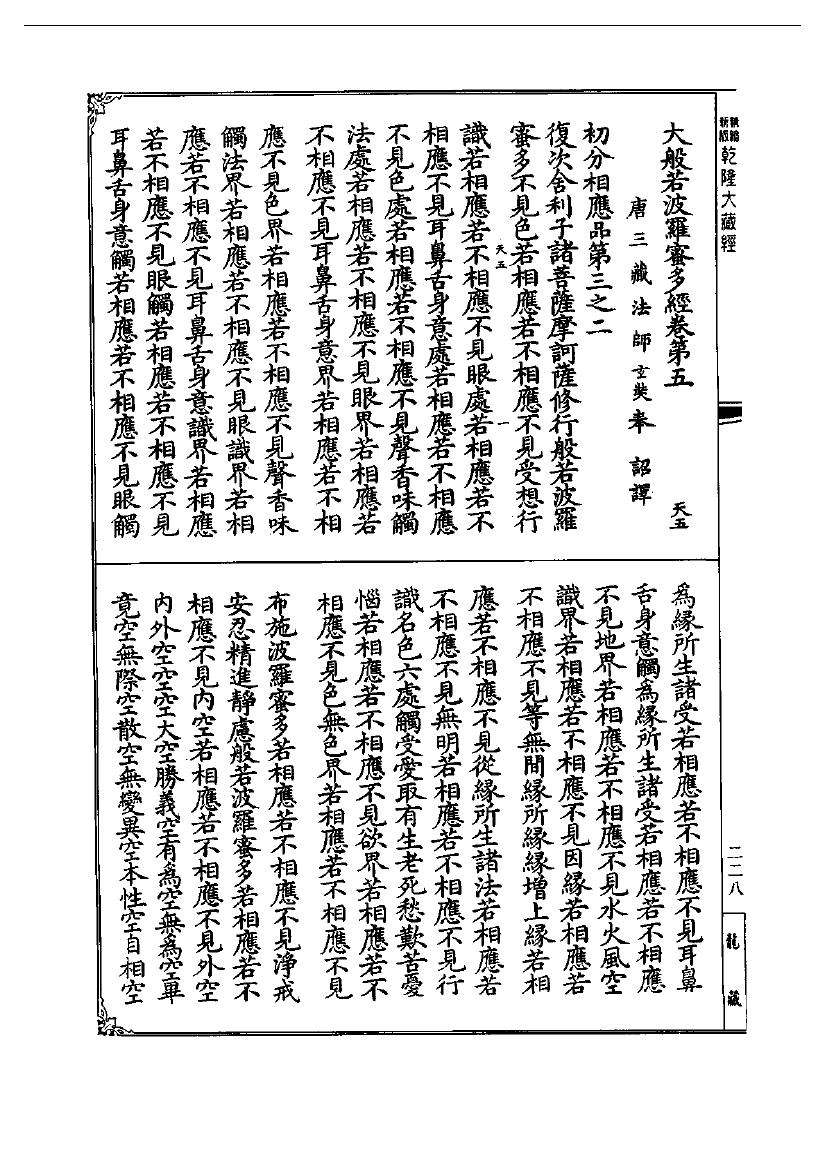 新編
新編
乾隆大藏經
大般若波羅蜜多經卷第五
天五
唐三藏法師玄奘奉 詔譯
初分相應品第三之二
復次舍利子諸菩薩摩訶薩修行般若波羅
蜜多不見色若相應若不相應不見受想行
天五
一
識若相應若不相應不見眼處若相應若不
相應不見耳鼻舌身意處若相應若不相應
不見色處若相應若不相應不見聲香味觸
法處若相應若不相應不見眼界若相應若
不相應不見耳鼻舌身意界若相應若不相
應不見色界若相應若不相應不見聲香味
觸法界若相應若不相應不見眼識界若相
應若不相應不見耳鼻舌身意識界若相應
若不相應不見眼觸若相應若不相應不見
耳鼻舌身意觸若相應若不相應不見眼觸
為緣所生諸受若相應若不相應不見耳鼻
舌身意觸為緣所生諸受若相應若不相應
不見地界若相應若不相應不見水火風空
識界若相應若不相應不見因緣若相應若
不相應不見等無間緣所緣緣增上緣若相
應若不相應不見從緣所生諸法若相應若
不相應不見無明若相應若不相應不見行
識名色六處觸受愛取有生老死愁歎苦憂
惱若相應若不相應不見欲界若相應若不
相應不見色無色界若相應若不相應不見
布施波羅蜜多若相應若不相應不見淨戒
安忍精進靜慮般若波羅蜜多若相應若不
相應不見內空若相應若不相應不見外空
內外空空空大空勝義空有為空無為空畢
竟空無際空散空無變異空本性空自相空
二二八
龍藏